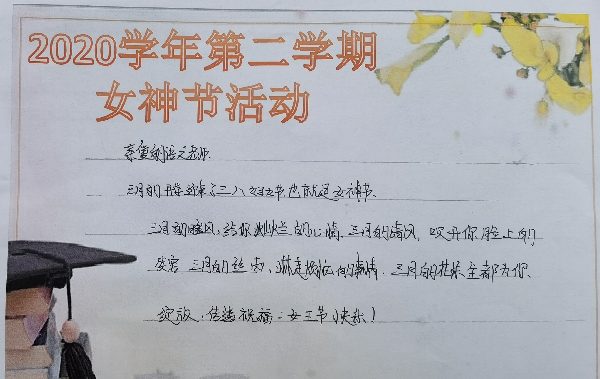 2020学年第二学期
女神节活动
亲爱的语文老师
三月的 三八妇女节也就是女神节
三月的暖风,给你灿烂的心情、三月的清风,吹开你脸上的
笑容 三月的丝雨、淋走 的 情.三月的花朵全都为你、
绽放,传递祝福:女三节快乐!